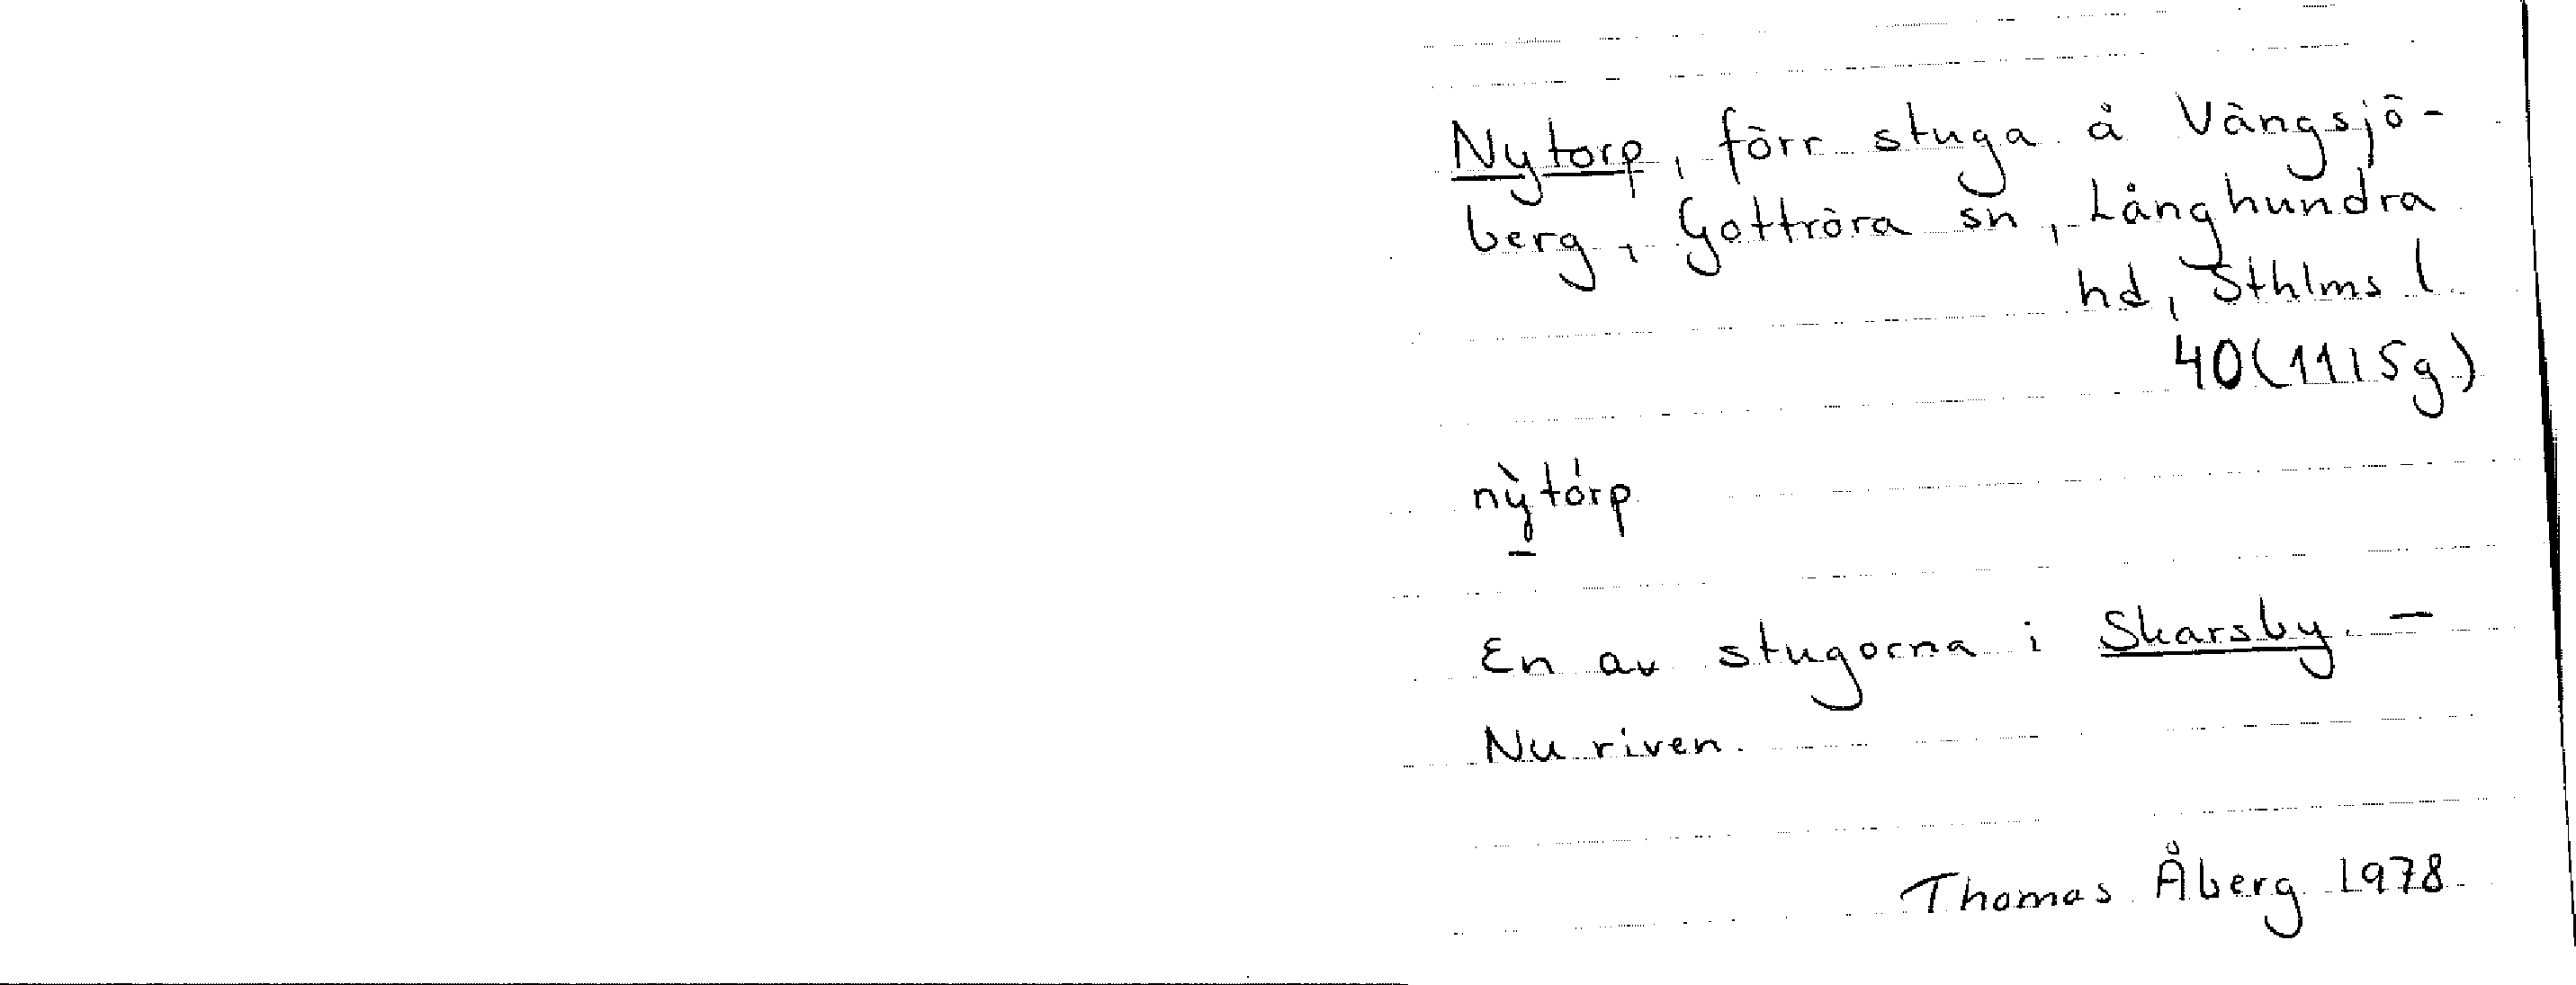 Nytorp, förr stuga å Vängsjö-
berg, Gottröra sn, Långhundra
hd, Sthlms l.
40(1115g)
nỳtórp
En av stugorna i Skarsby. –
Nu riven.
Thomas Åberg 1978